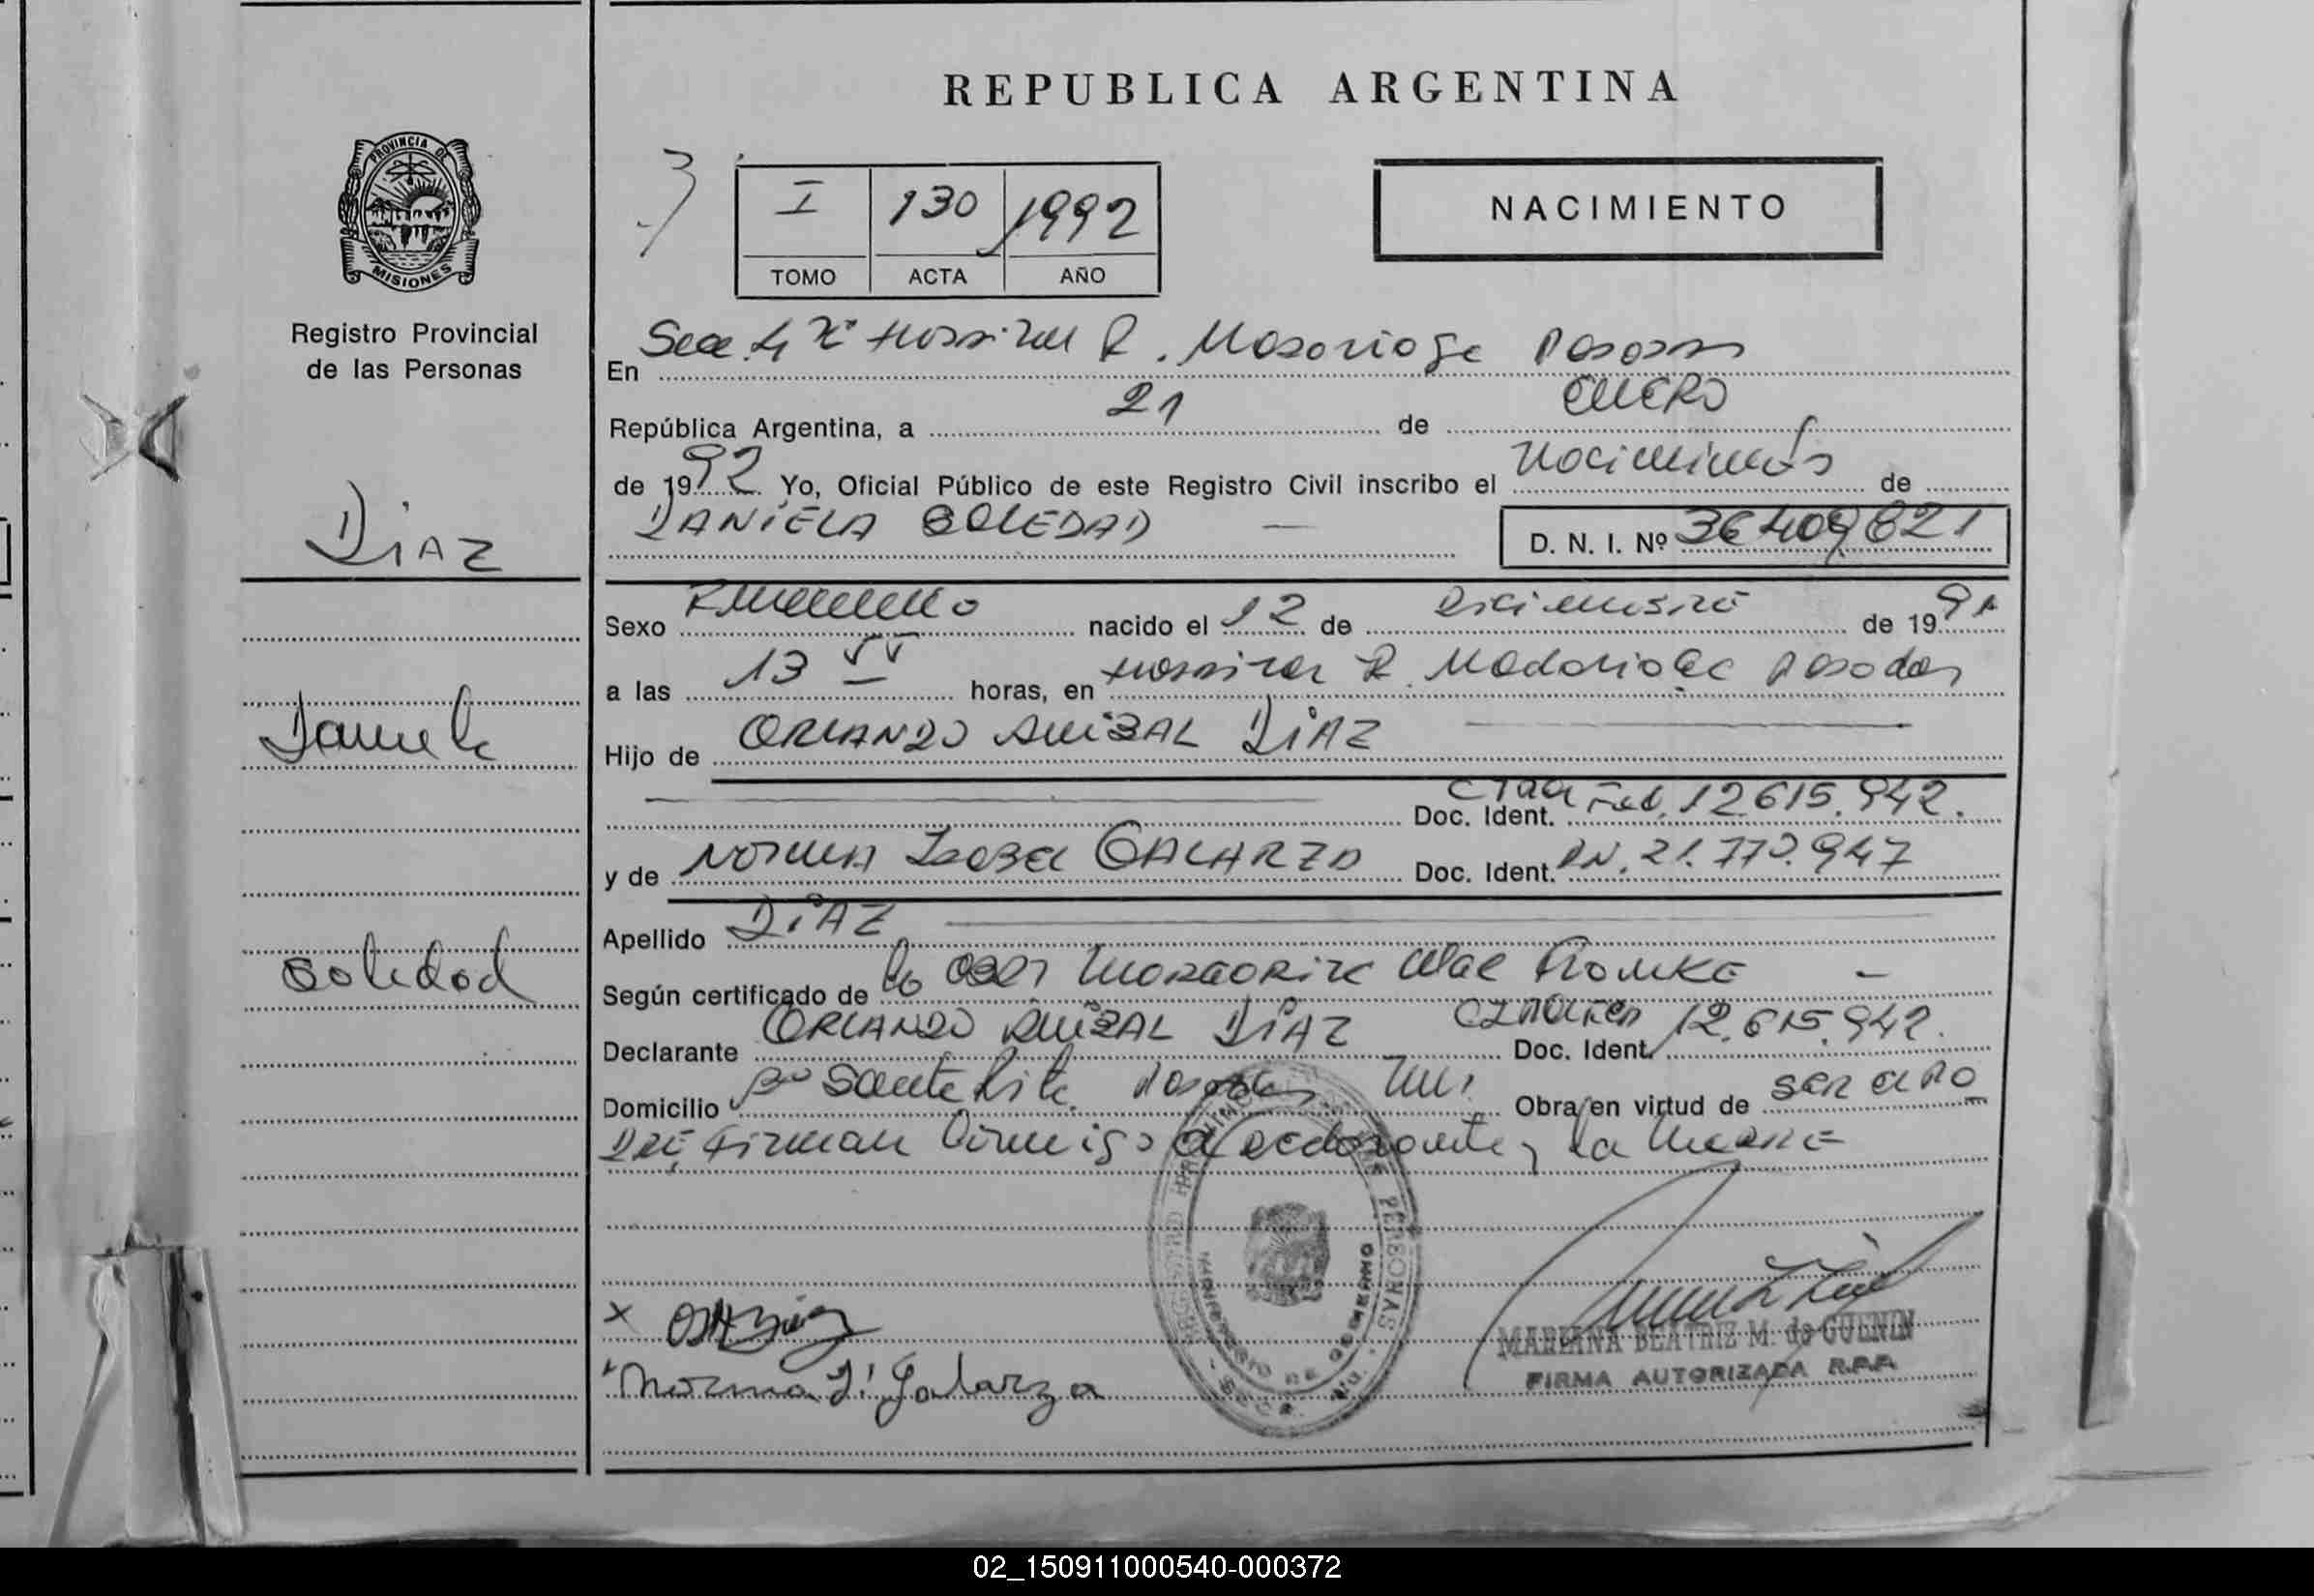 REPUBLICA ARGENTINA
PROVINCIA DE
MISIONES
Registro Provincial
de las Personas
I 130 1992
TOMO ACTA AÑO
NACIMIENTO
En Sec. 4ª Hospital R. Madariaga Posadas
República Argentina, a 21 de ENERO
de 1992 Yo, Oficial Público de este Registro Civil inscribo el Nacimiento de
DANIELA SOLEDAD — D. N. I. Nº 36409821
DIAZ
Sexo Femenino nacido el 12 de Diciembre de 1991
a las 13 horas, en Hospital R. Madariaga Posadas
Daniela
Hijo de ORLANDO ANIBAL DIAZ
Doc. Ident. 12.615.942.
y de NORMA Isabel GALARZA Doc. Ident. DN. 21.770.947
Apellido DIAZ
Soledad
Según certificado de la Obst Margarita
Declarante ORLANDO ANIBAL DIAZ Doc. Ident. 12.615.942.
Domicilio Bº Santa Rita Posadas Mnes Obra en virtud de ser el PA
DRE, Firman Conmigo el declarante y la Madre
PERSONAS
MINISTERIO DE GOBIERNO
x
Norma I. Galarza
MARIANA BEATRIZ M. de GUENIN
FIRMA AUTORIZADA R.P.P.
02_150911000540-000372